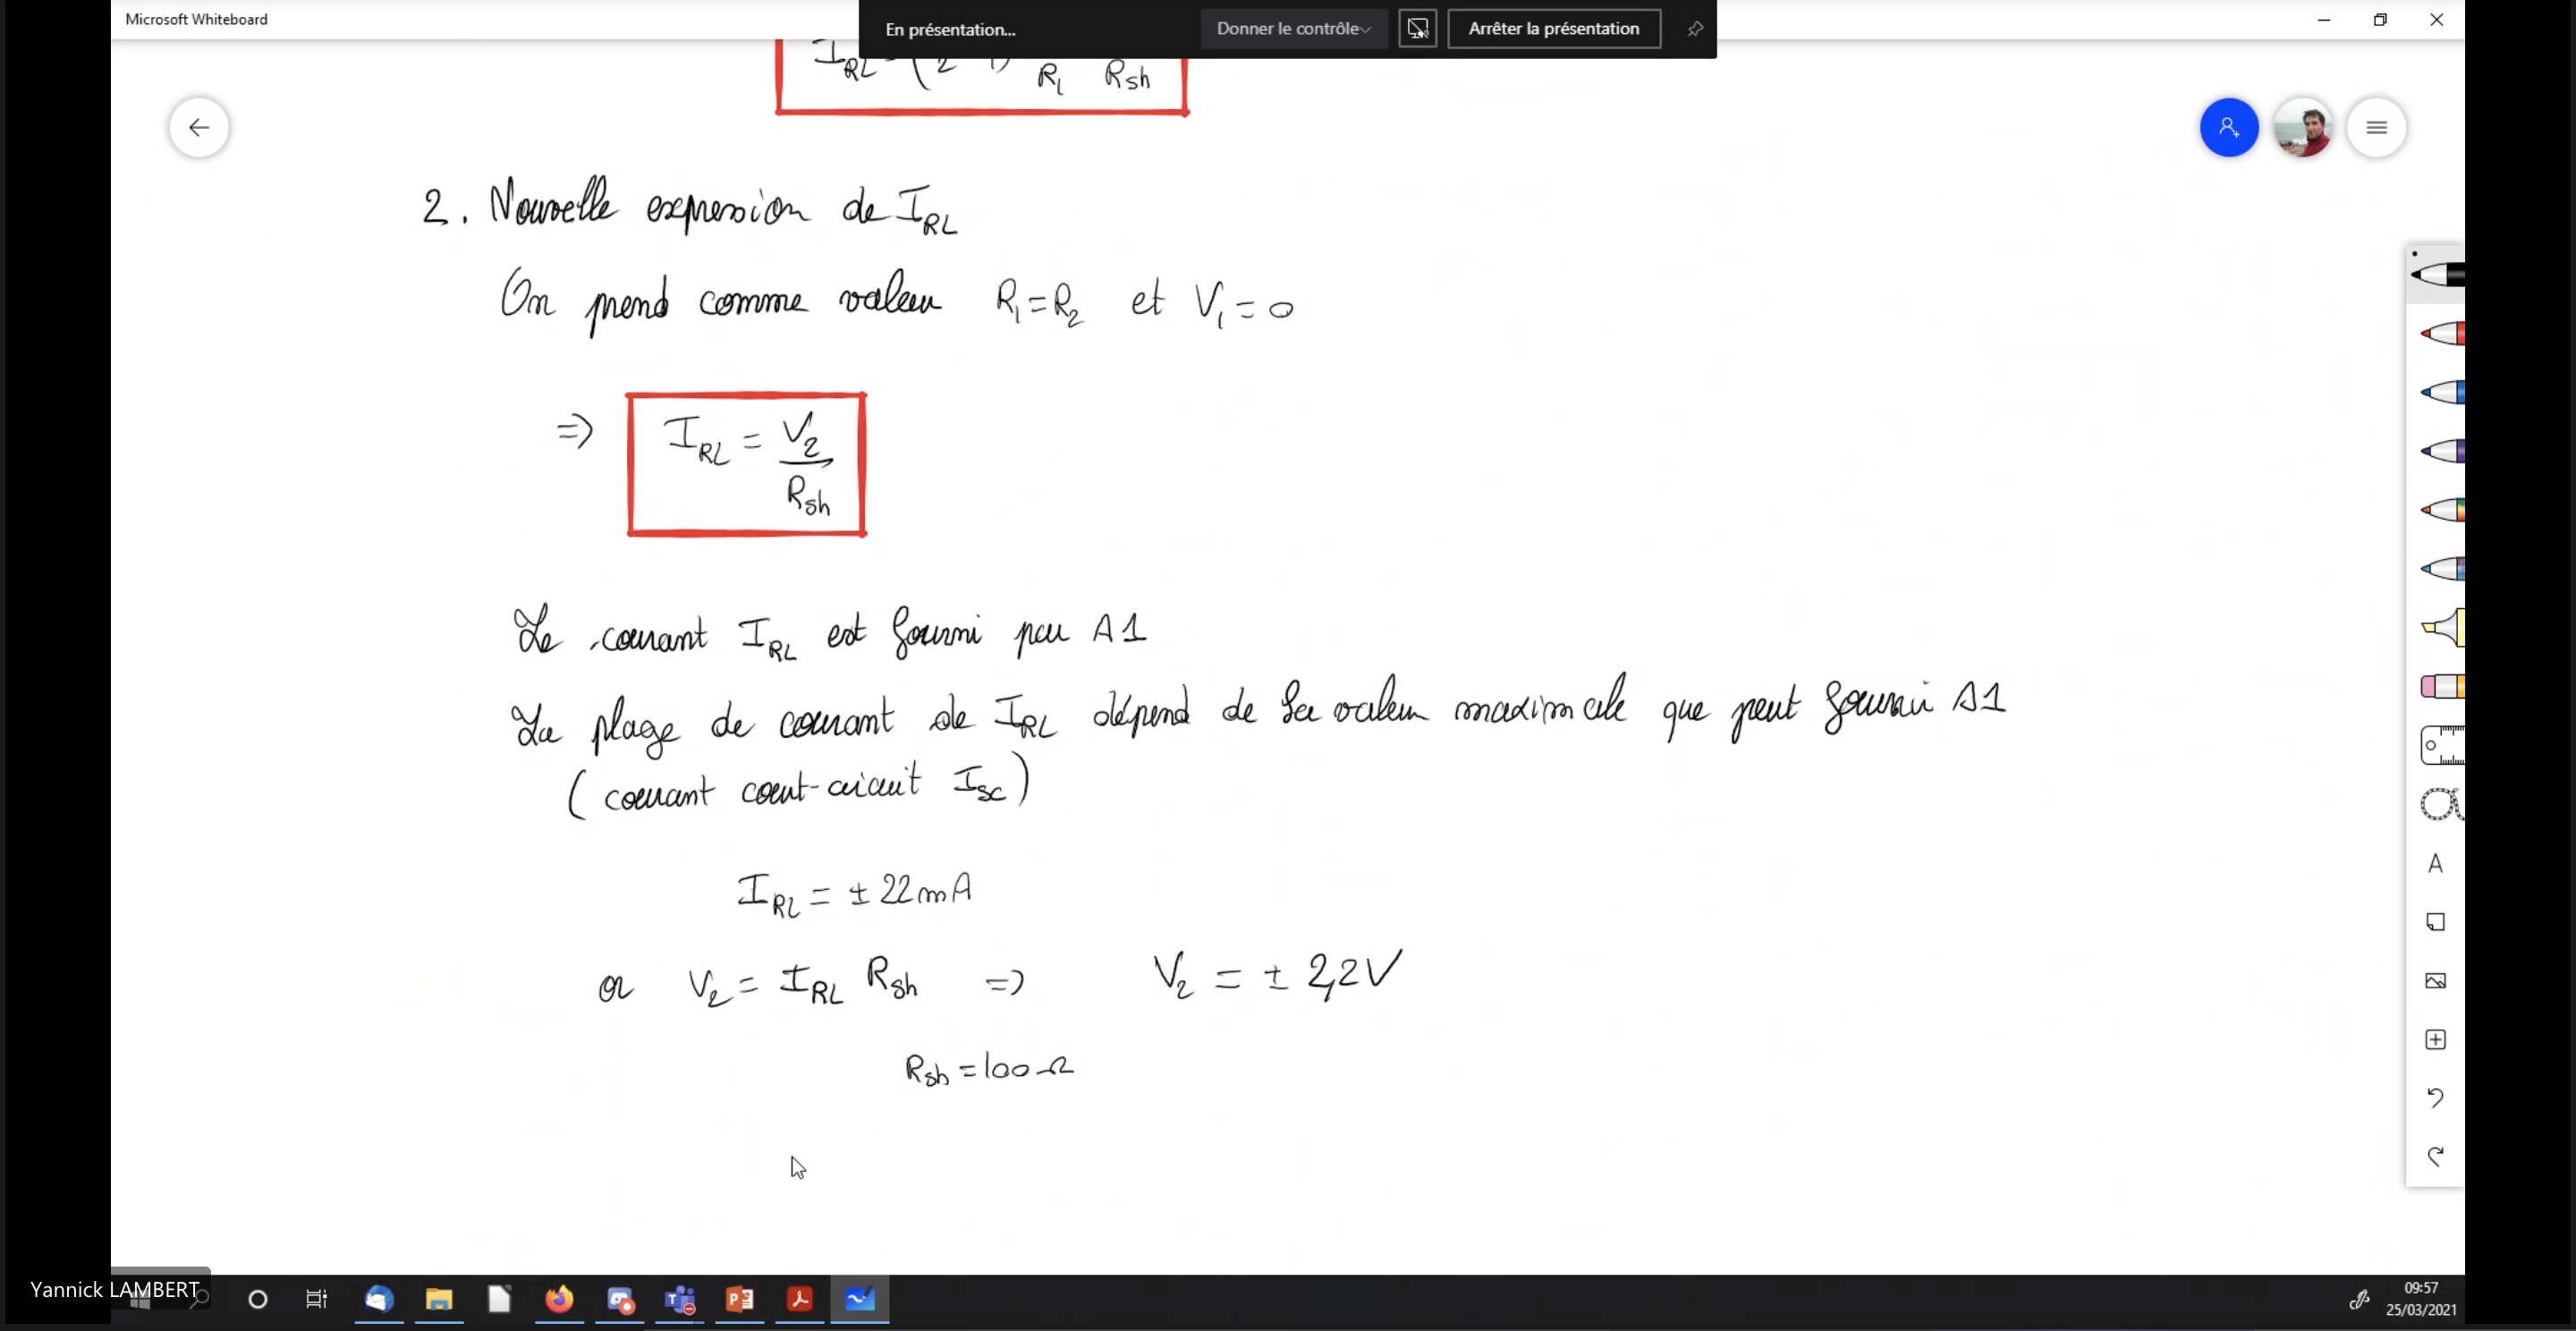 Microsoft Whiteboard
En présentation...
Donner le contrôle
Arrêter la présentation
I_RL = (
R_1 R_sh
2. Nouvelle expression de I_RL
On prend comme valeur R_1 = R_2 et V_1 = 0
=> I_RL = V_2 / R_sh
Le courant I_RL est fourni par A1
La plage de courant de I_RL dépend de la valeur maximale que peut fournir A1
(courant court-circuit I_SC)
I_RL = ± 22 mA
or V_2 = I_RL R_sh => V_2 = ± 2,2 V
R_sh = 100 Ω
A
Yannick LAMBERT
09:57
25/03/2021